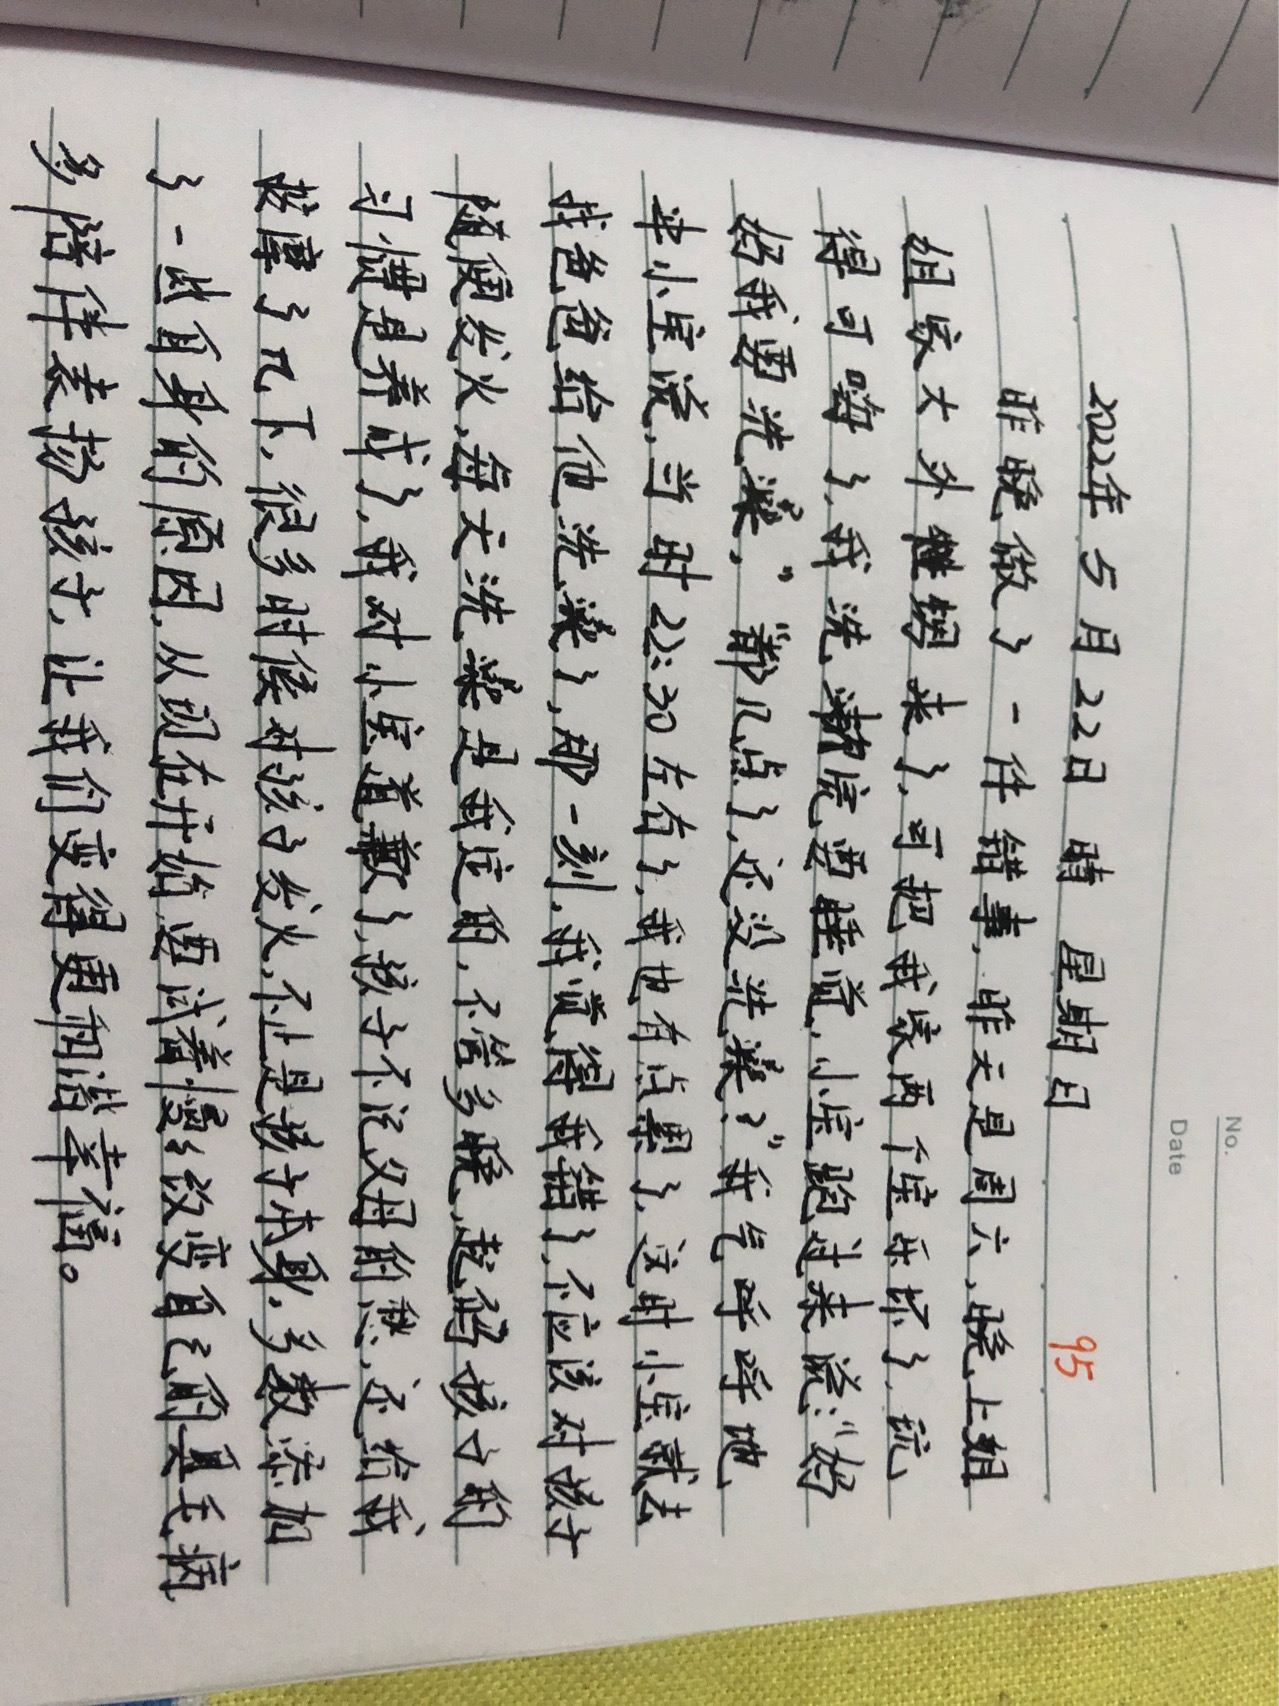 No.
Date
2022年5月22日 晴 星期日 95
昨晚做了一件错事,昨天是周六,晚上姐
姐家大外甥来了,可把我家两个宝乐坏了,玩
得可嗨了,我洗漱完要睡觉,小宝跑过来说:“妈
妈我要洗澡,”“都几点了,还没洗澡?”我气呼呼地
冲小宝说,当时22:30左右了,我也有点累了,这时小宝就去
找爸爸给他洗澡了,那一刻,我觉得我错了,不应该对孩子
随便发火,每天洗澡是我定的,不管多晚,起码孩子的
习惯是养成了,我对小宝道歉了,孩子不记父母的愁,还给我
按摩了几下,很多时候对孩子发火,不止是孩子本身,多数添加
了一些自身的原因,从现在开始要试着慢慢改变自己的臭毛病
多陪伴表扬孩子,让我们变得更和谐幸福。